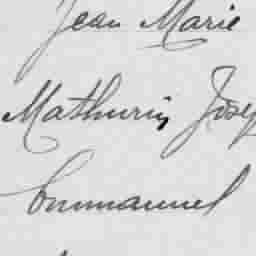 Jean Marie
Mathurin Josep
Emmanuel